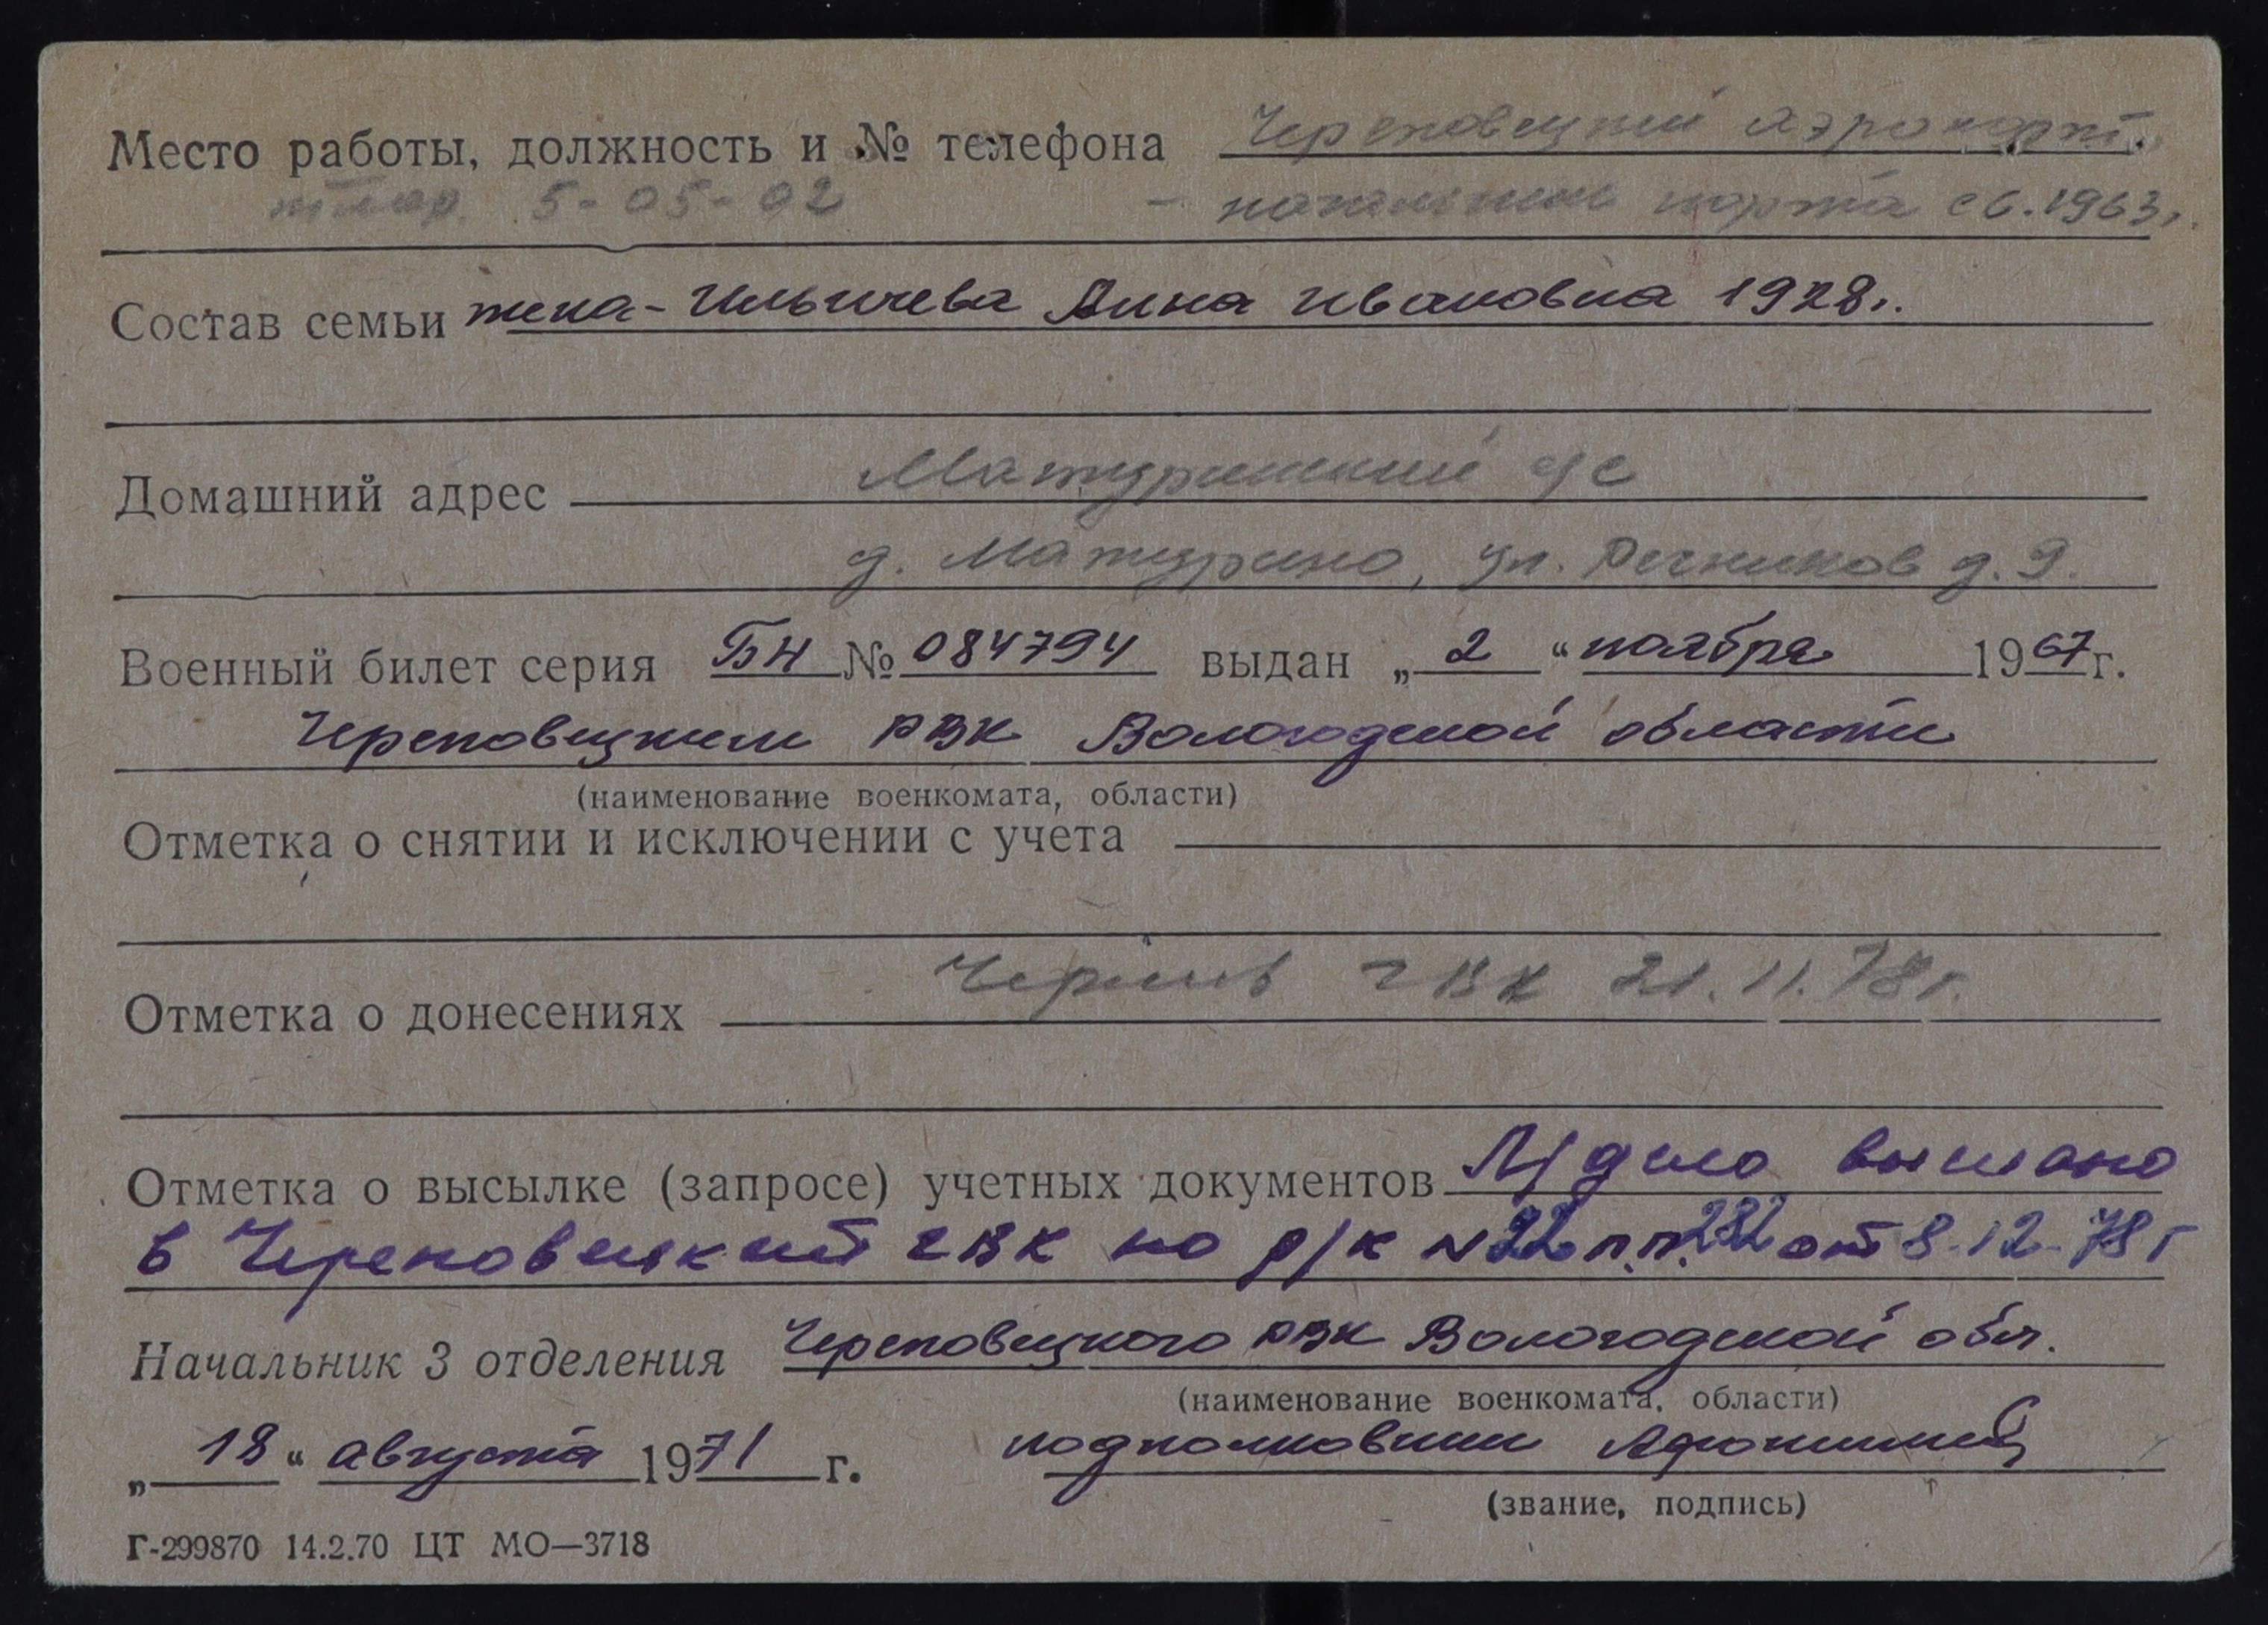 Место работы, должность и № телефона Череповецкий аэропорт
5-05-02 - начальник порта с 6.1963г.
Состав семьи жена - Ильичева Анна Ивановна 1928г.
Домашний адрес Матуринский с/с
д. Матурино, ул. Речников д. 9.
Военный билет серия БН № 084794 выдан „2“ ноября 1967г.
Череповецким РВК Вологодской области
(наименование военкомата, области)
Отметка о снятии и исключении с учета
Отметка о донесениях ГВК 21.11.78г.
Отметка о высылке (запросе) учетных документов Л/дело выслано
в Череповецкий ГВК по р/к N22 п.п.282 от 8-12-78 г
Начальник 3 отделения Череповецкого РВК Вологодской обл.
(наименование военкомата, области)
„18“ августа 1971 г. подполковник
(звание, подпись)
Г-299870 14.2.70 ЦТ МО—3718